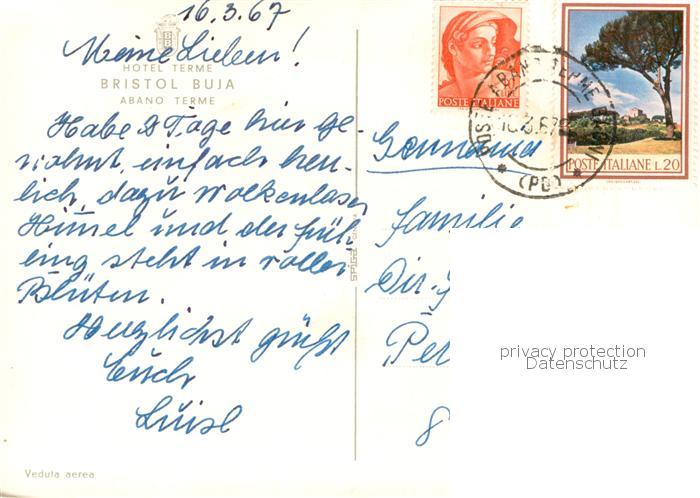 16.3.67
Meine Lieben!
HOTEL TERME
BRISTOL BUJA
ABANO TERME
Habe 8 Tage hier ge-
wohnt, einfach herr-
lich, dazu wolkenlosen
Himel und der Früh-
ling steht in vollen
Blüten.
Herzlichst grüßt
Euch
Luisl
Veduta aerea
POSTE ITALIANE
POSTE ITALIANE L. 20
ABANO TERME
(PD)
Germania
Familie
Dir.
Per
8
privacy protection
Datenschutz